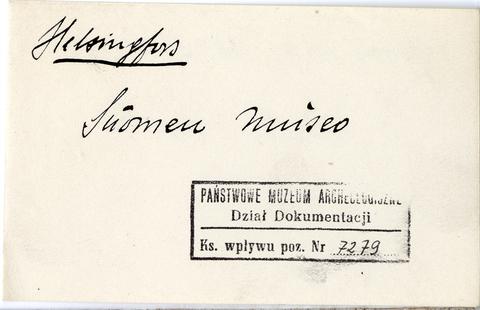 Helsingfors
Suomen museo
PAŃSTWOWE MUZEUM ARCHEOLOGICZNE
Dział Dokumentacji
Ks. wpływu poz. Nr 7279